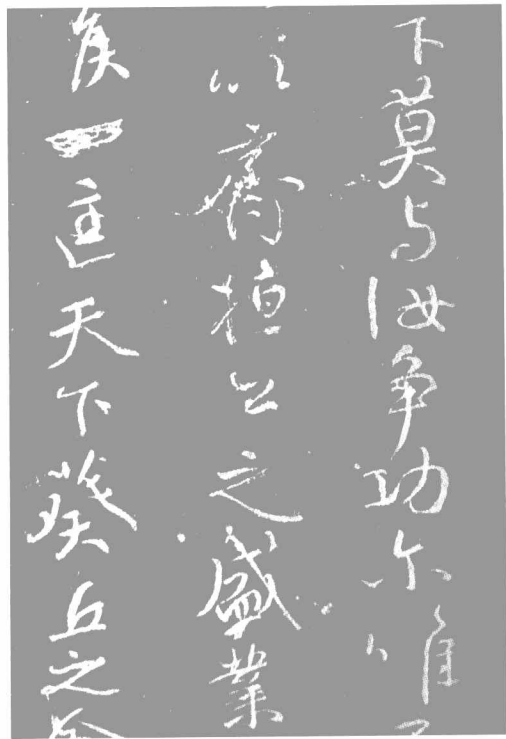 下莫与汝争功尔唯
以齊桓公之盛業
侯一匡天下葵丘之